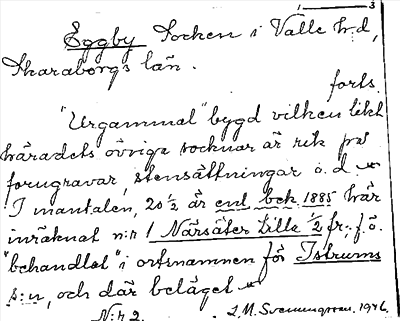 1 — 3
Eggby Socken i Valle h:d,
Skaraborgs län.
forts.
"Urgammal" bygd vilken likt
häradets övriga socknar är rik på
forngravar, stensättningar o. d.
I mantalen, 20 ½ är enl. bek. 1885 här
inräknat n:r 1 Närsäter Lilla ½ fr: f. ö.
"behandlat" i ortsnamnen för Istrums
s:n, och där beläget
N:r 2. L. M. Svenungsson. 1946.